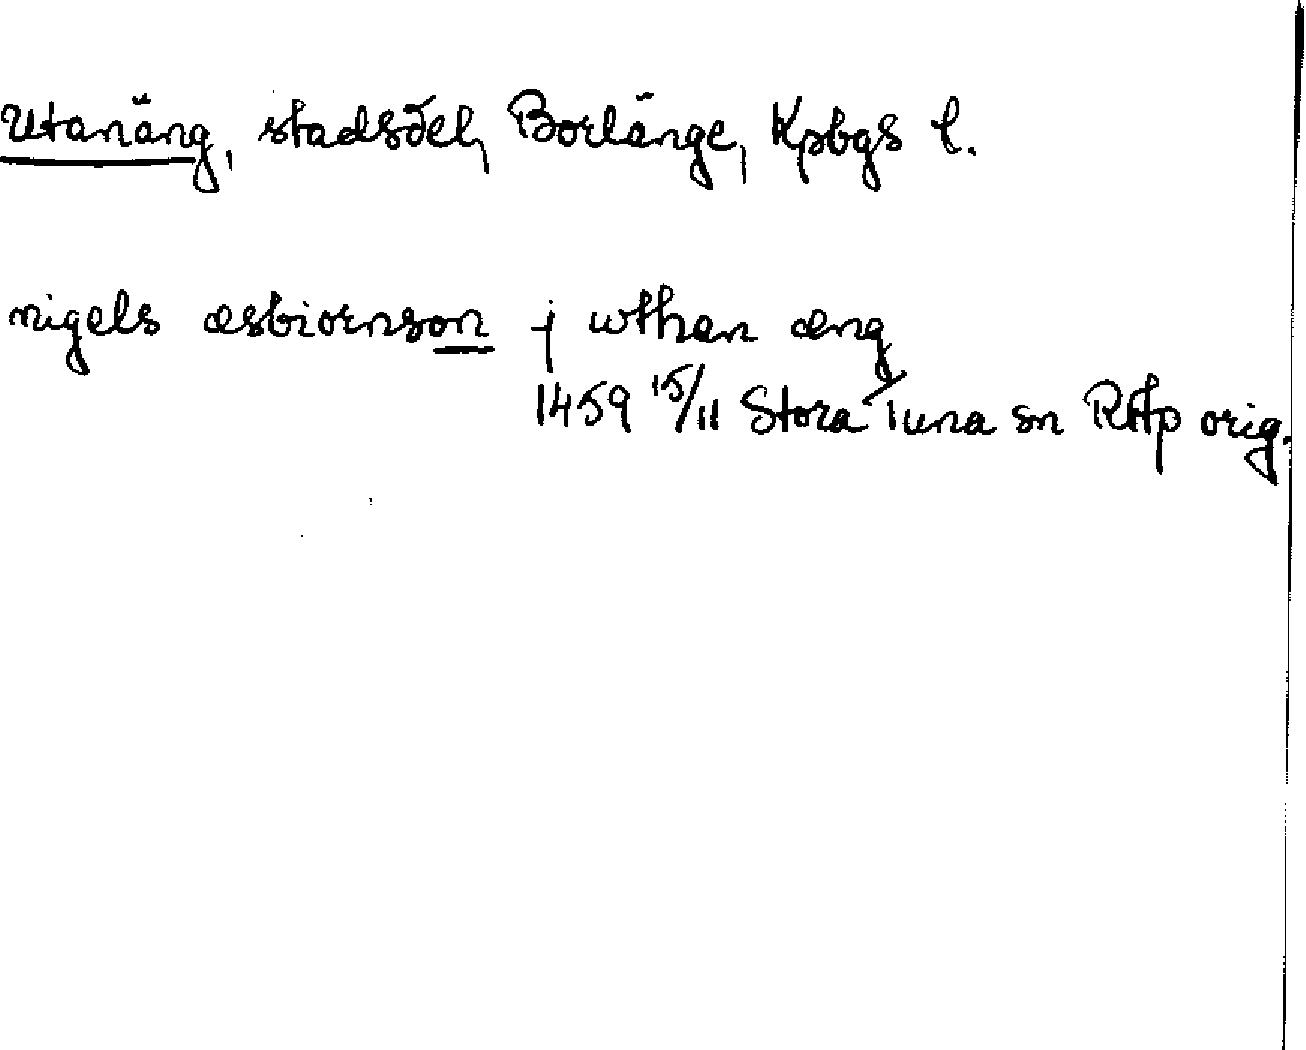 Utanäng, stadsdel, Borlänge, Kpbgs l.
nigels æsbiornson j wthan æng
1459 15/11 Stora Tuna sn RAp orig.